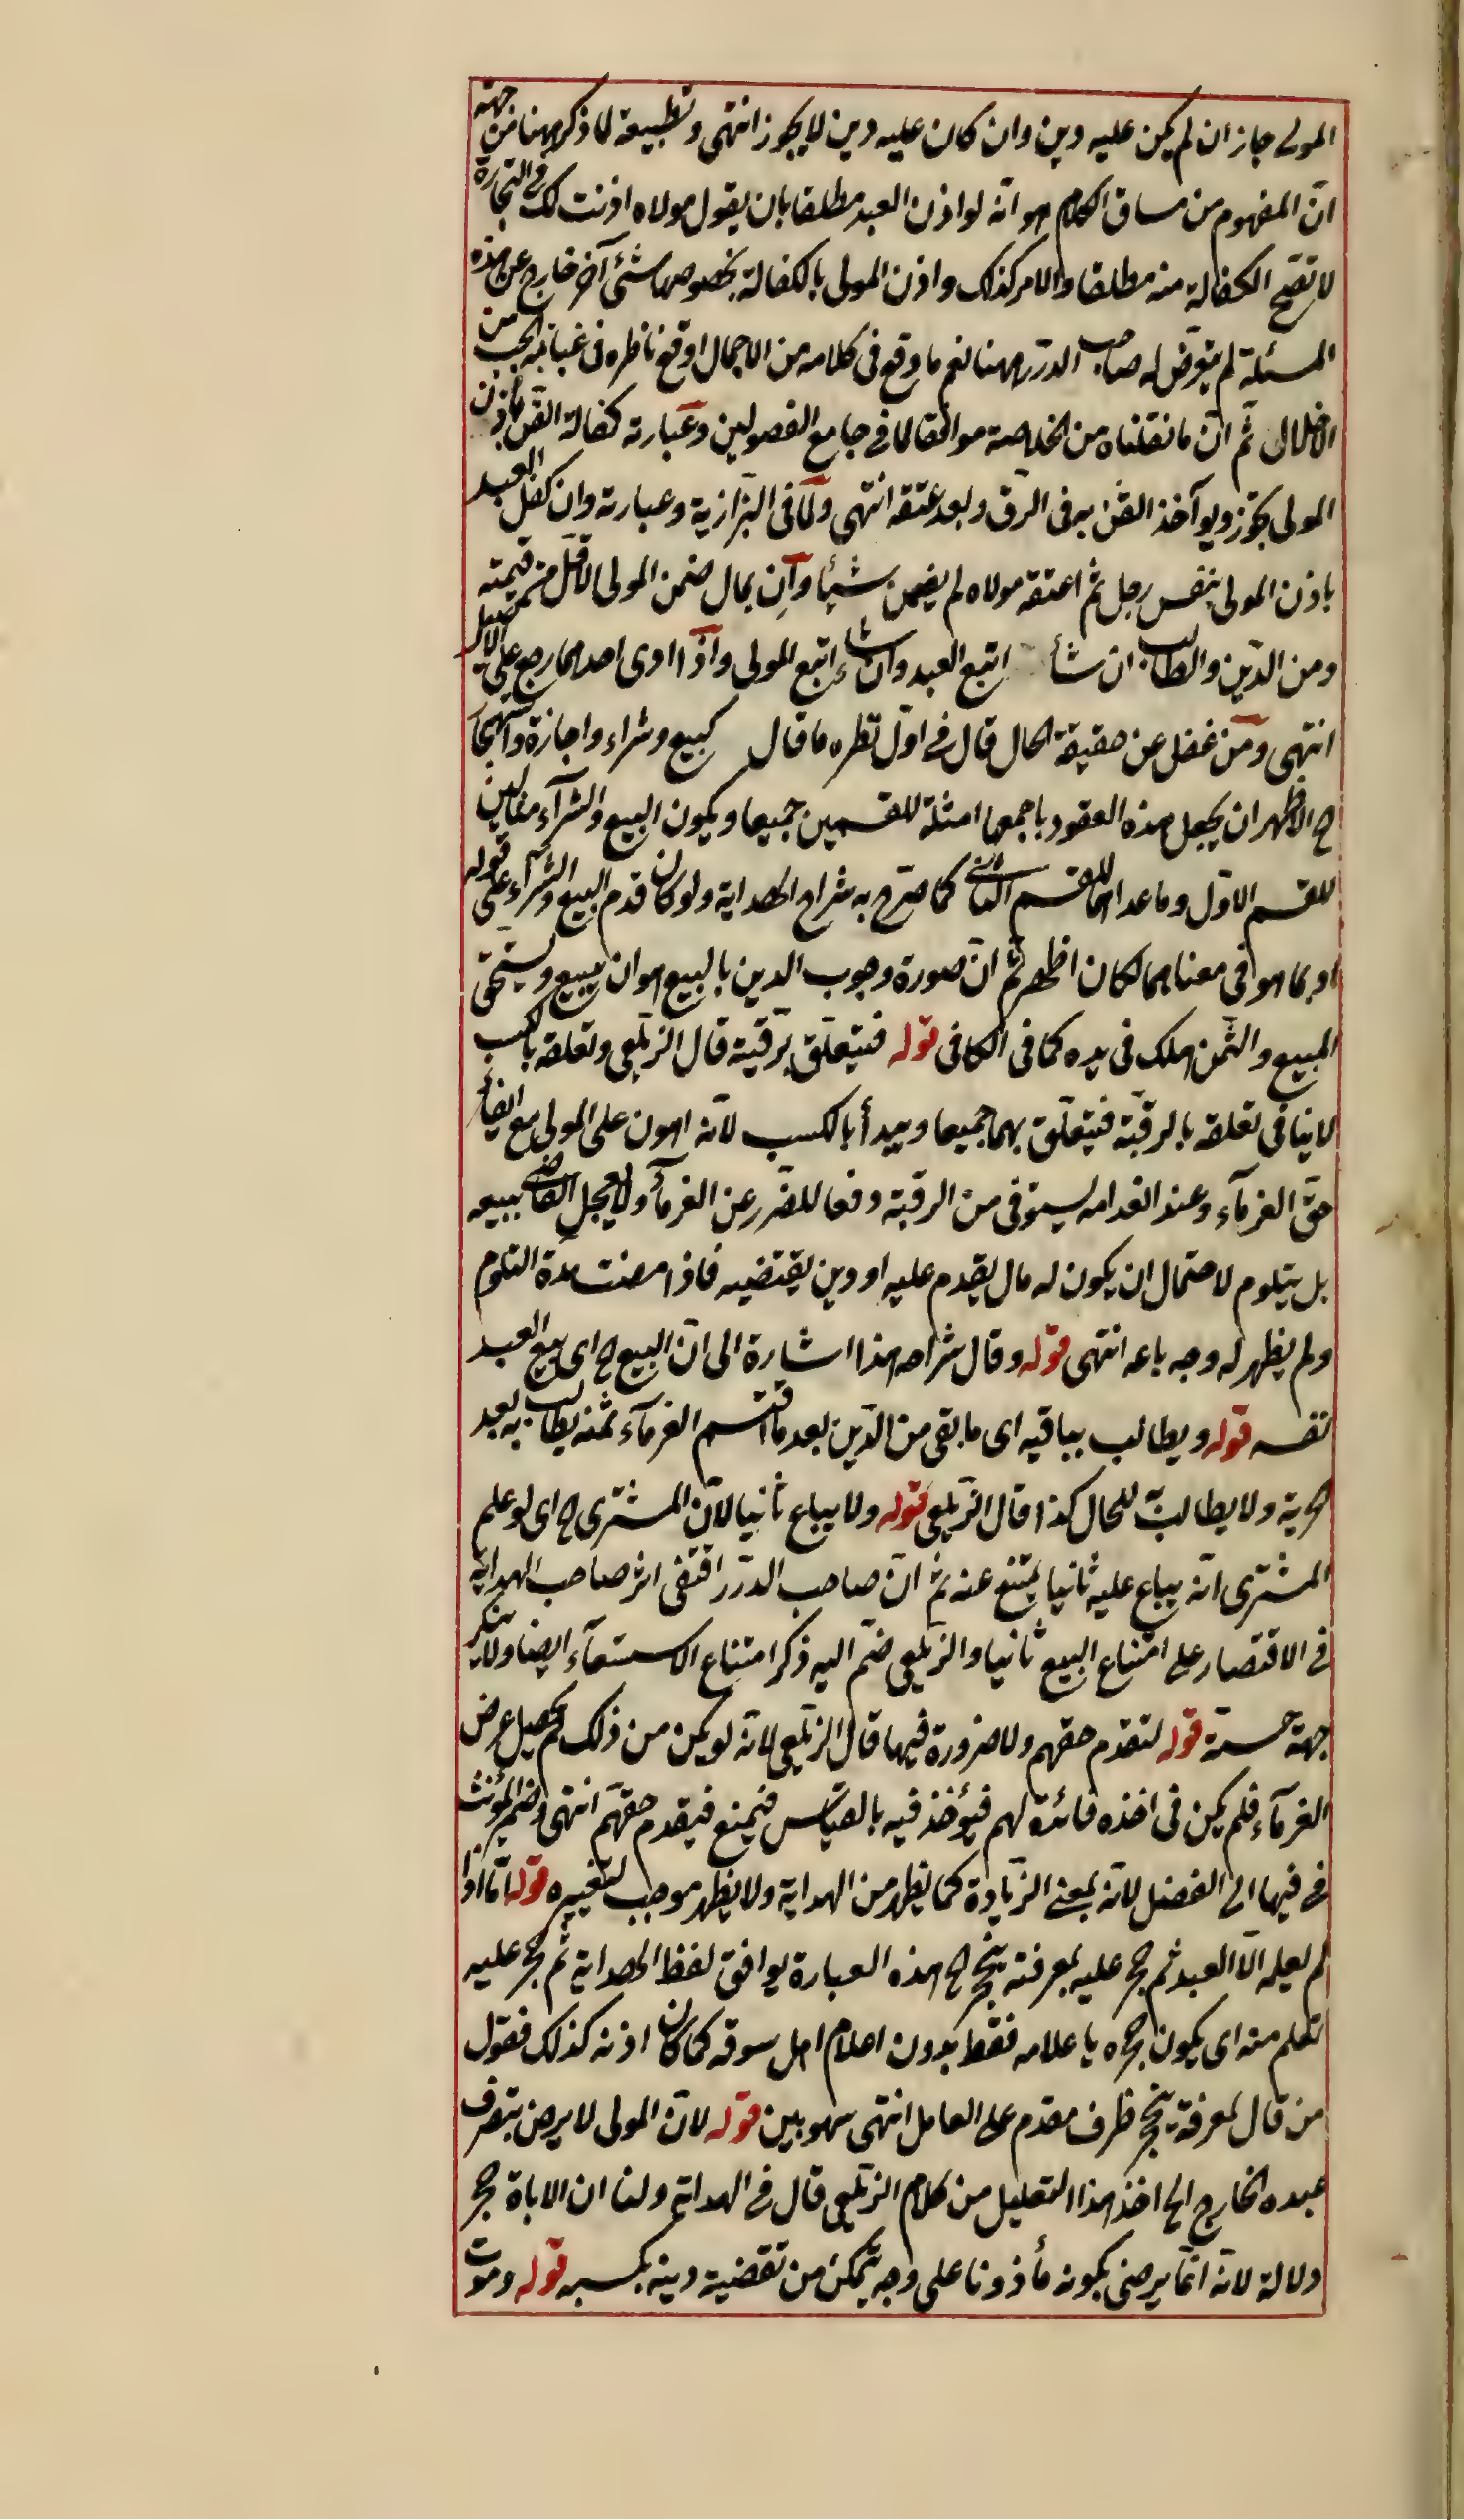 المولى جاز ان لم يكن عليه دين وان كان عليه دين لا يجوز انتهى وتطبيقه لما ذكر ههنا من جهة
انّ المفهوم من مساق الكلام هو انّه لو اذن العبد مطلقا بان يقول مولاه اذنت لك في التجارة
لا تصّح الكفالة منه مطلقا والامر كذلك واذن المولى بالكفالة بخصوصها شئ آخر خارج عن هذه
المسئلة لم يتعرّض له صاحب الدرر ههنا نعم ما وقع في كلامه من الاجمال اوقع ناظره في غيابة الجب من
الاخلال ثم انّ ما نقلناه من الخلاصة موافقا لما في جامع الفصولين وعبارته كفالة القن باذن
المولى تجوز ويوآخذ القنّ به في الرّق وبعد عتقه انتهى ولما في البزازية وعبارته وان كفل العبد
باذن المولى بنفس رجل ثم اعتقه مولاه لم يضمن شيئا وان بمال ضمن المولى الاقل من قيمته
ومن الدّين والطالب ان شاء اتبع العبد وان شاء اتبع المولى واذا ادى احدهما رجع على الاصيل
انتهى ومن غفل عن حقيقة الحال قال في اوّل نظره ما قال كبيع وشراء واجازة واستيجار
ح الاظهر ان يجعل هذه العقود باجمعها امثلة للقسمين جميعا ويكون البيع والشرآء مثالين
للقسم الاوّل وما عداهما للقسم الثاني كما صرّح به شراح الهداية ولو كان قدم البيع والشرآء على قوله
او بما هو في معناهما لكان اظهر ثم انّ صورة وجوب الدين بالبيع هو ان يبيع ويستحق
المبيع والثّمن هلك في يده كما في الكافى قوله فيتعلّق برقبته قال الزيلعى وتعلقه بالكسب
لا ينافى تعلقه بالرقبة فيتعلّق بهما جميعا ويبدأ بالكسب لانّه اهون على المولى مع ايفاء
حقّ الغرمآء وعند انعدامه يستوفى من الرقبة دفعا للضّرر عن الغرمآء ولا يعجل القاضى ببيعه
بل يتلوم لاحتمال ان يكون له مال يقدم عليه او دين يقتضيه فاذا مضت مدة التلوم
ولم يظهر له وجه باعه انتهى قوله وقال شراحه هذا اشارة الى انّ البيع ح اى بيع العبد
نفسه قوله ويطالب بباقيه اى ما بقى من الدّين بعد ما اقتسم الغرمآء ثمنه يطالب به بعد
الحرية ولا يطالب به للحال كذا قال الزيلعى قوله ولا يباع ثانيا لانّ المشترى ح اى لو علم
المشترى انّه يباع عليه ثانيا يمتنع عنه ثم انّ صاحب الدرر اقتفى اثر صاحب الهداية
في الاقتصار على امتناع البيع ثانيا والزيلعى ضمّ اليه ذكر امتناع الاستسعآء ايضا ولا ينكر
جهة حسنه قوله لتقدم حقهم ولا ضرورة فيها قال الزيلعى لانّه لو يمكن من ذلك لم يحصل غرض
الغرمآء فلم يكن في اخذه فائدة لهم فيؤخذ فيه بالقياس فيمنع فيقدم حقهم انتهى وضمير المؤنث
في فيها الى الفضل لانّه بمعنى الزّيادة كما يظهر من الهداية ولا يظهر موجب لتغييره قوله امّا اذا
لم يعلم الّا العبد ثم حجر عليه بمعرفته ينحجر ح هذه العبارة يوافق لفظ الهداية ثم حجر عليه
بعلم منه اى يكون حجره باعلامه فقط بدون اعلام اهل سوقه كما كان اذنه كذلك فقول
من قال بمعرفة ينحجر ظرف مقدم على العامل انتهى سهو بين قوله لانّ المولى لا يرضى بتصرف
عبده الخارج الخ اخذ هذا التعليل من كلام الزيلعى قال في الهداية ولنا ان الاباق حجر
دلالة لانّه انّما يرضى بكونه مأذونا على وجه يتمكن من تقضية دينه بكسبه قوله وموت